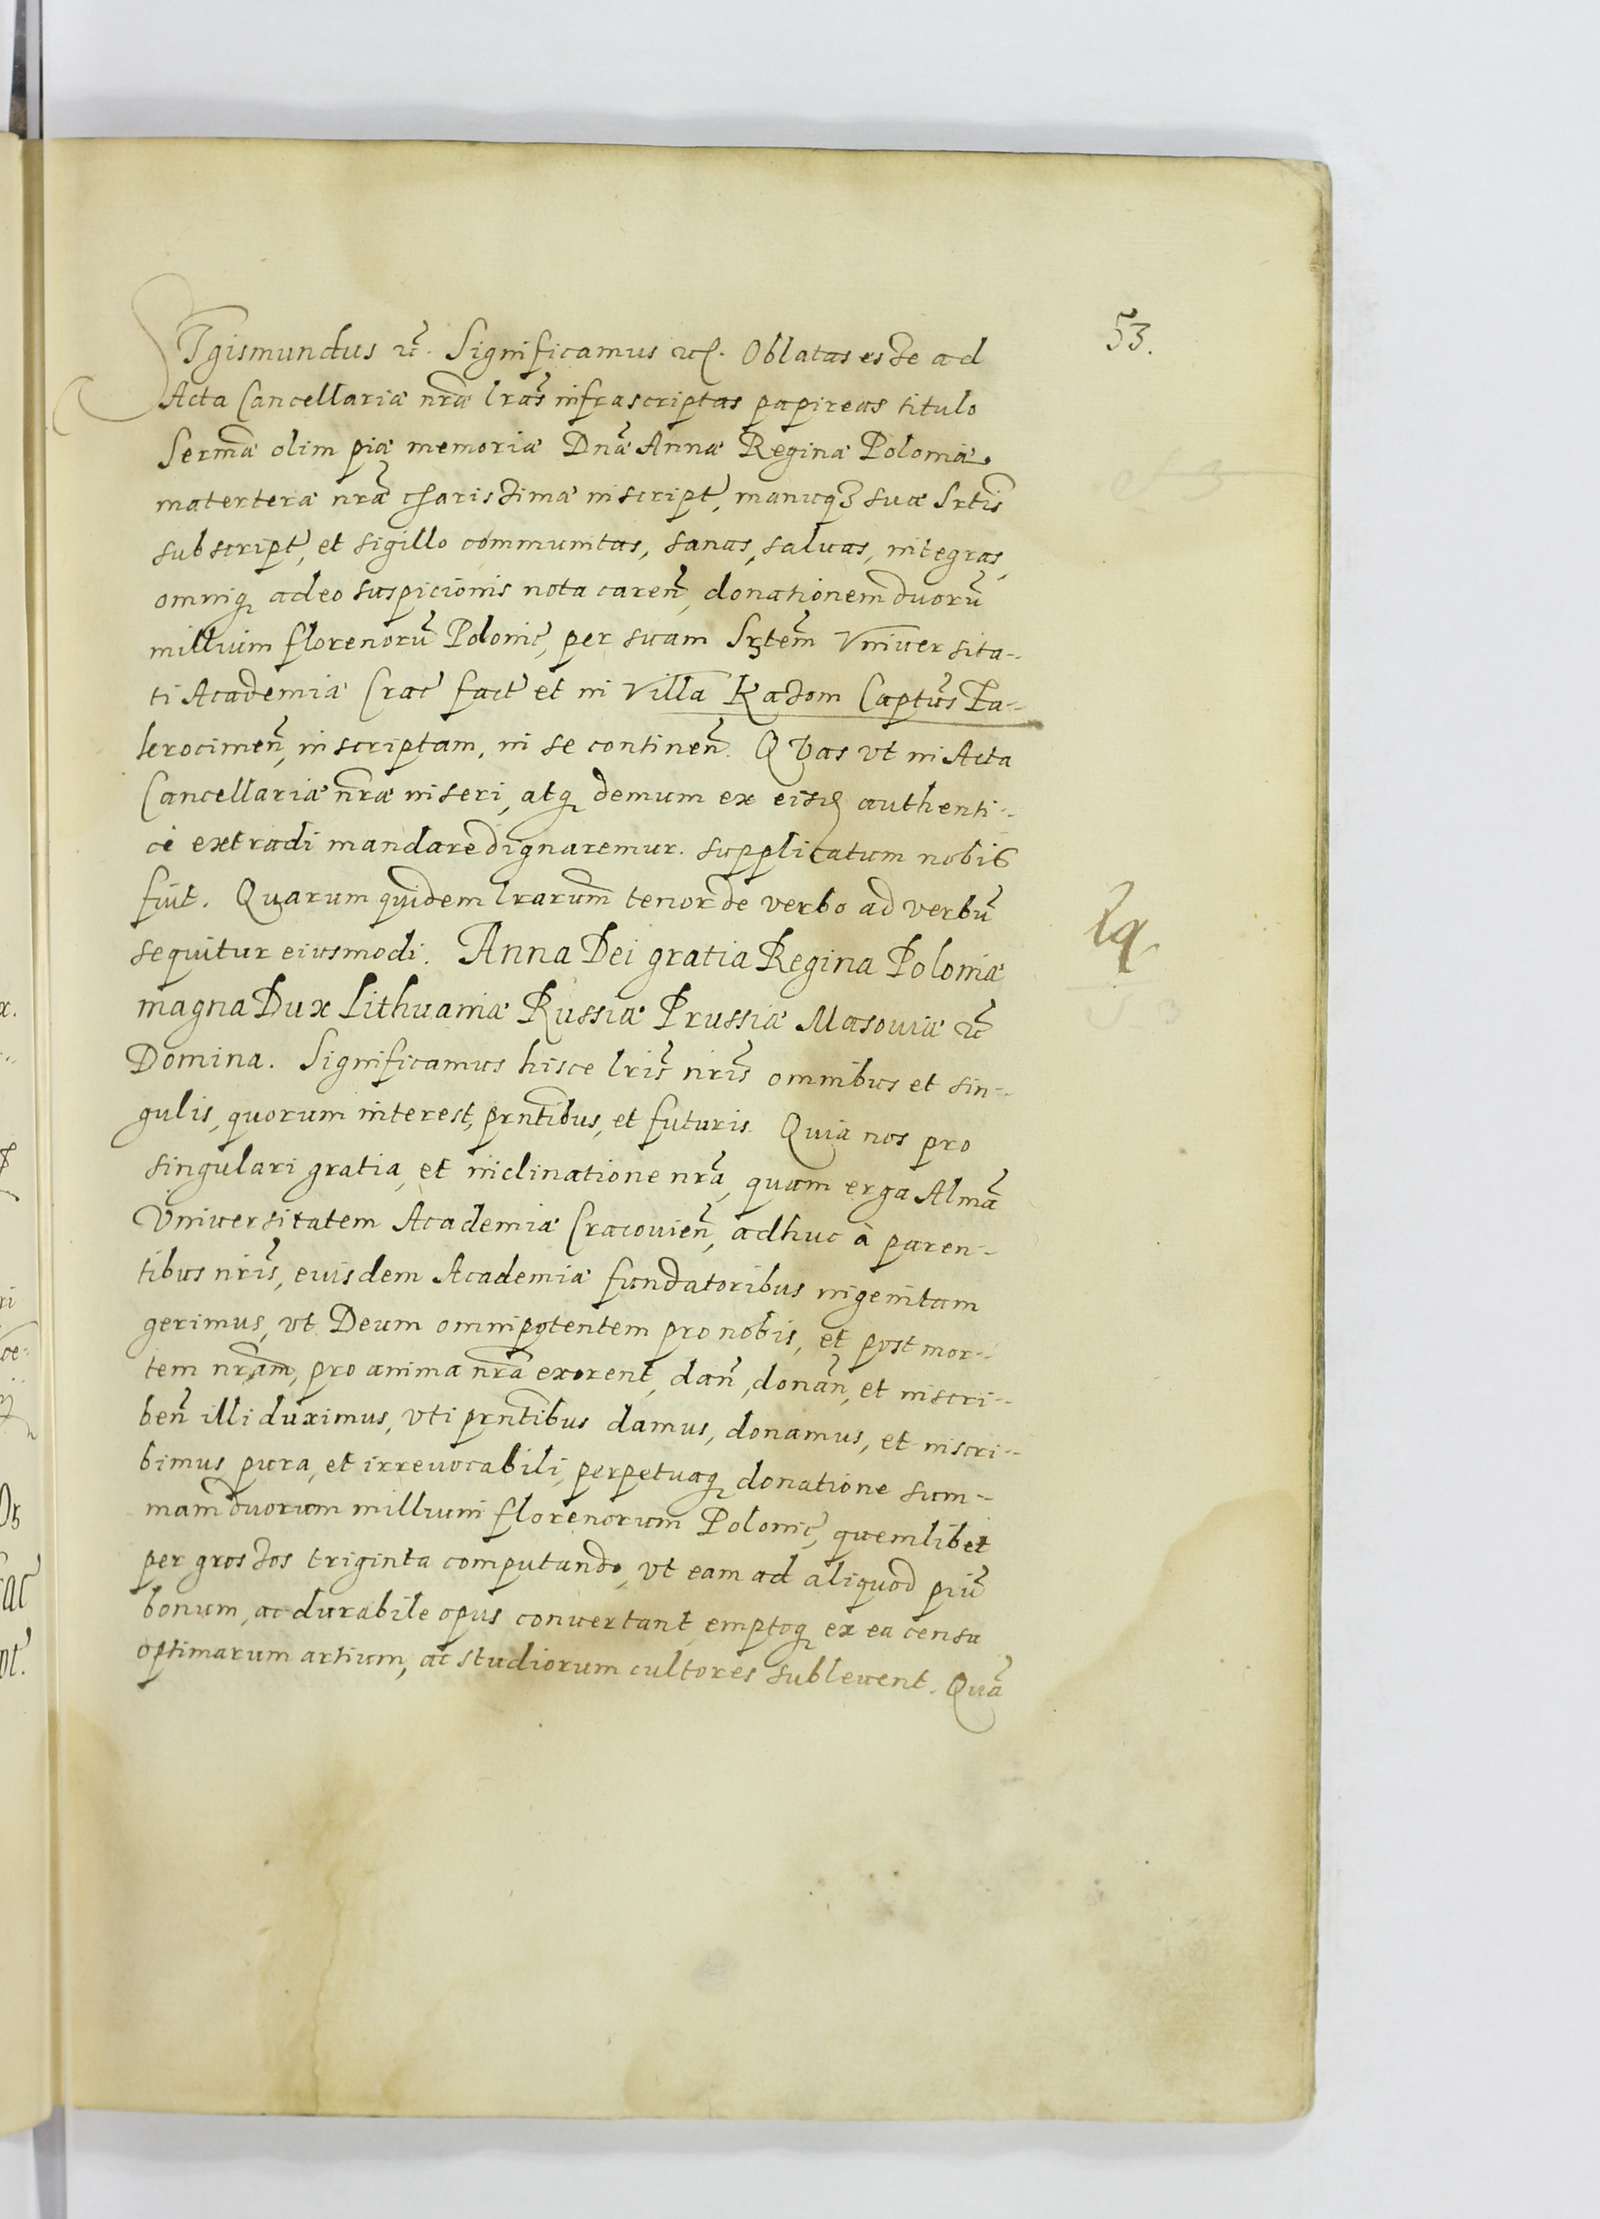 53.
Sigismundus etc̃. Significamus etc. Oblatas esse ad
Acta Cancellariæ nr̃æ lr̃as infrascriptas papireas titulo
Serm̃æ olim piæ memoriæ Dnæ̃ Annæ Reginæ Poloniæ
materteræ nr̃æ charissimæ inscript̃, manuq3 suæ Srt̃is
subscript̃, et sigillo communitas, sanas, saluas, integras,
omniq3 adeo suspicionis nota careñ, donationem duorũ
millium florenorũ Polonic̃, per suam Srtẽm Vniuersita-
ti Academiæ Crac̃ fact̃ et in Villa Radom Captũs Ta-
lerocimeñ, inscriptam, in se contineñ. Quas vt in Acta
Cancellariæ nr̃æ inseri, atq3 demum ex eisd authenti-
cè extradi mandare dignaremur. supplicatum nobis
fuit. Quarum quidem lr̃arum tenor de verbo ad verbũ
sequitur eiusmodi. Anna Dei gratia Regina Poloniæ
magna Dux Lithuaniæ Russiæ Prussiæ Masouiæ etc̃
Domina. Significamus hisce lr̃is nr̃is omnibus et sin-
gulis, quorum interest, prñtibus, et futuris. Quia nos pro
singulari gratia, et inclinatione nr̃a, quam erga Almã
Vniuersitatem Academiæ Cracouieñ, adhuc à paren-
tibus nr̃is, euisdem Academiæ fundatoribus ingenitam
gerimus, vt Deum omnipotentem pro nobis, et post mor-
tem nr̃am, pro anima nr̃a exorent, dañ, donañ, et inscri-
beñ illi duximus, vti prñtibus damus, donamus, et inscri-
bimus pura, et irreuocabili, perpetuaq3 donatione sum-
mam duorum millium florenorum Polonic̃, quemlibet
per grossos triginta computando, vt eam ad aliquod piũ
bonum, ac durabile opus conuertant, emptoq3 ex ea censu
optimarum artium, ac studiorum cultores subleuent. Quã